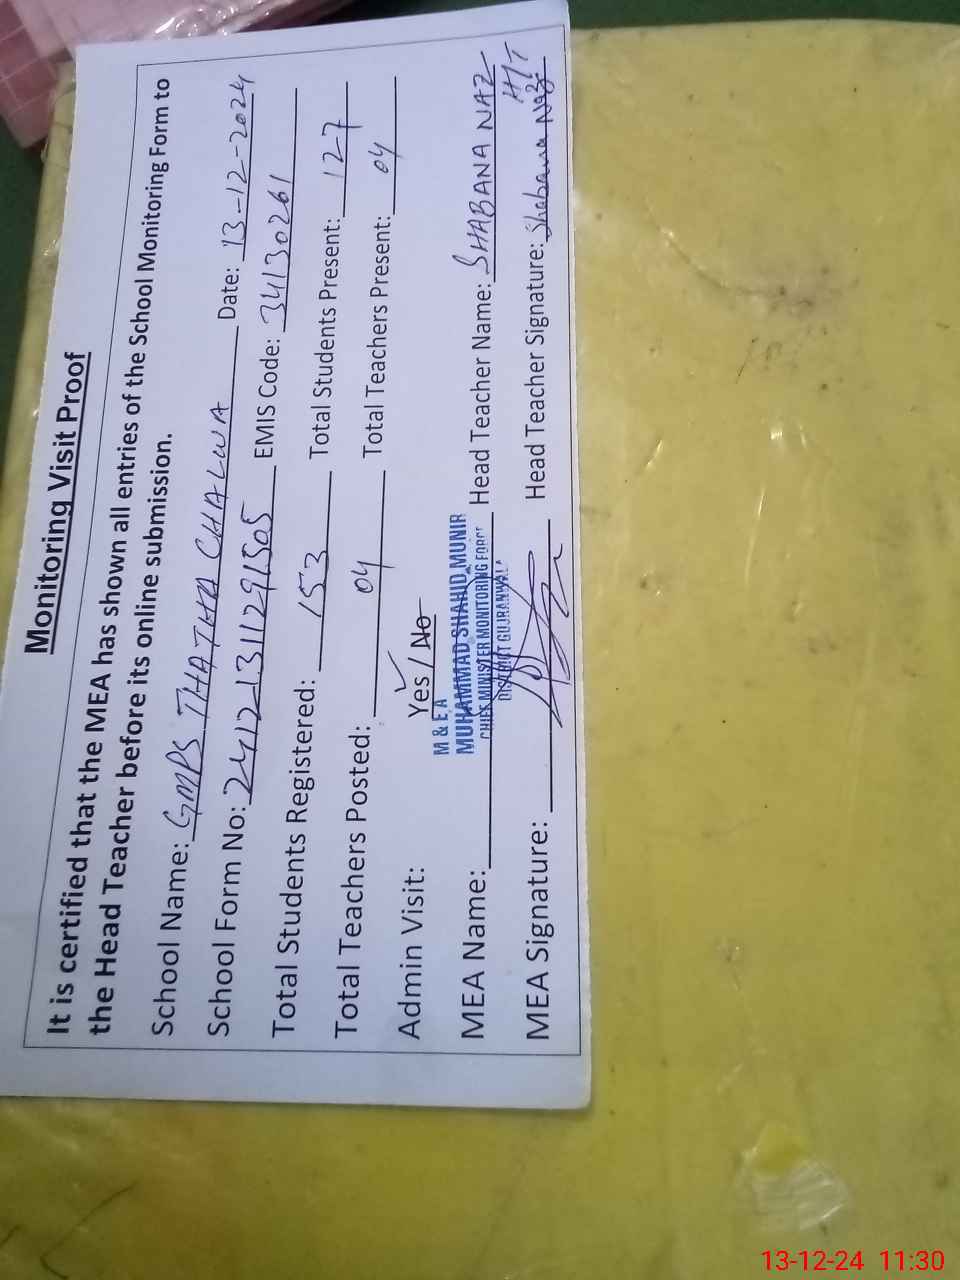 Monitoring Visit Proof
It is certified that the MEA has shown all entries of the School Monitoring Form to
the Head Teacher before its online submission.
School Name: GMPS THATHA CHALWA Date: 13-12-2024
School Form No: 24121311291505 EMIS Code: 34130261
Total Students Registered: 153 Total Students Present: 127
Total Teachers Posted: 04 Total Teachers Present: 04
Admin Visit: Yes / No
M & E A
MUHAMMAD SHAHID MUNIR
CHIEF MINISTER MONITORING FORCE
DISTRICT GUJRANWALA
MEA Name: Head Teacher Name: SHABANA NAZ
H/T
MEA Signature: Head Teacher Signature: Shabana Naz
13-12-24 11:30